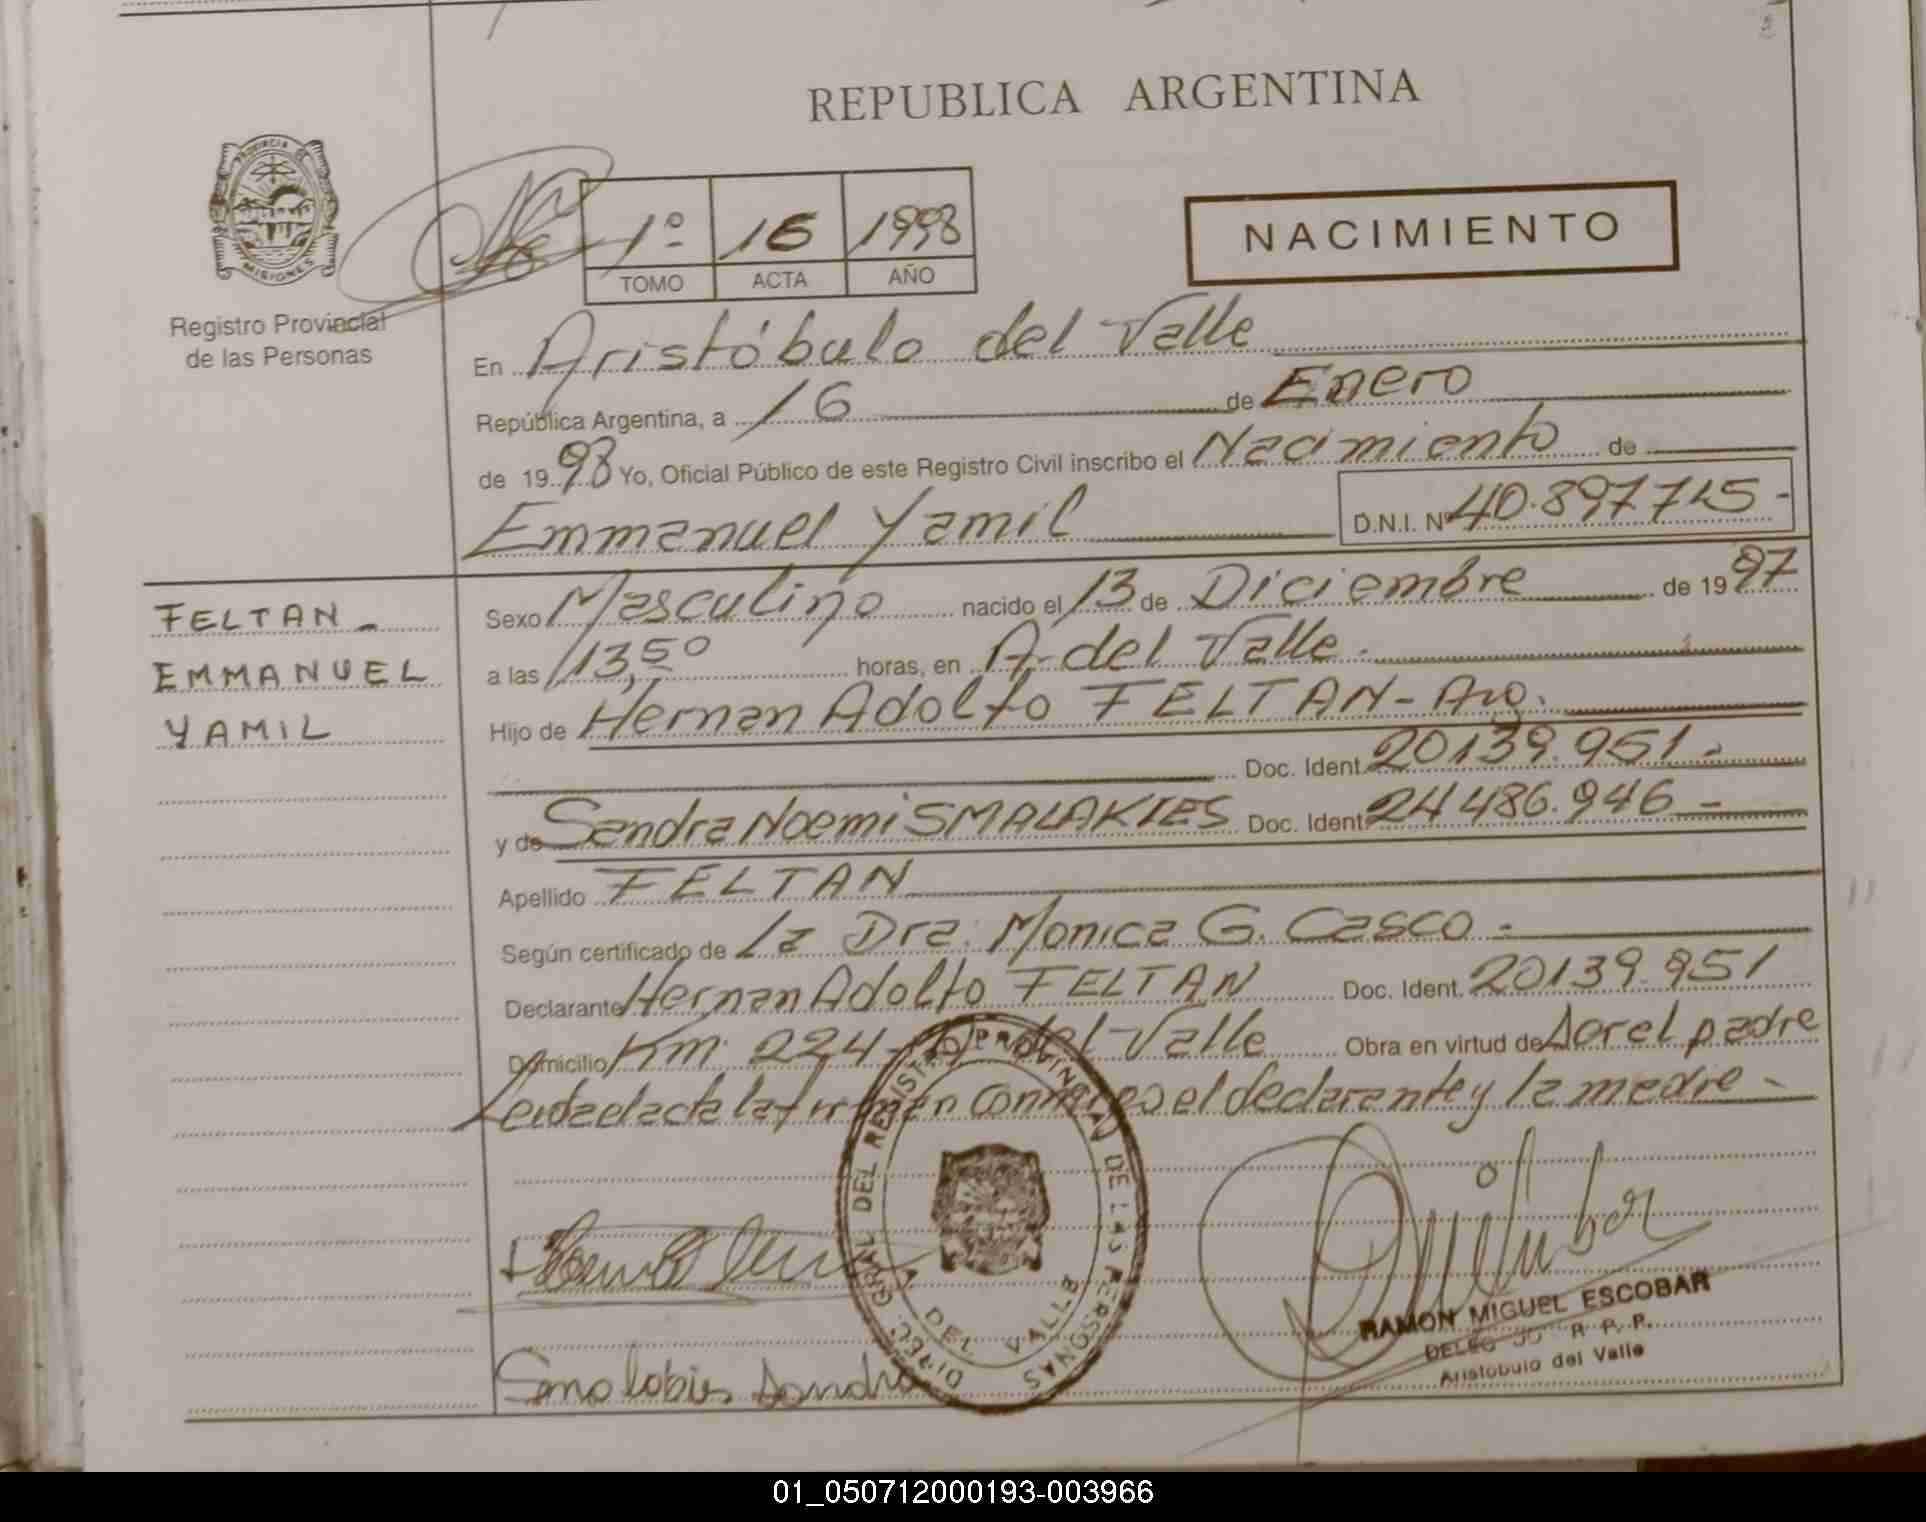 REPUBLICA ARGENTINA
PROVINCIA DE MISIONES
Registro Provincial
de las Personas
1º 16 1998
TOMO ACTA AÑO
NACIMIENTO
En Aristóbulo del Valle
República Argentina, a 16 de Enero
de 1998 Yo, Oficial Público de este Registro Civil inscribo el Nacimiento de
Emmanuel Yamil D.N.I. Nº 40.897.715-
FELTAN-
EMMANUEL
YAMIL
Sexo Masculino nacido el 13 de Diciembre de 1997
a las 13,50 horas, en A. del Valle.
Hijo de Hernan Adolfo FELTAN- Arg.
Doc. Ident. 20139.951-
y de Sandra Noemi SMALAKIES Doc. Ident. 24486.946-
Apellido FELTAN
Según certificado de la Dra. Monica G. Casco-
Declarante Hernan Adolfo FELTAN Doc. Ident. 20139.951
Domicilio Km. 224- A. del Valle Obra en virtud de ser el padre
Leida el acta la firman conmigo el declarante y la madre-
DIREC. GRAL. DEL REGISTRO PROVINCIAL DE LAS PERSONAS
DEL VALLE
RAMON MIGUEL ESCOBAR
R. P. P.
Aristobulo del Valle
Sandra
01_050712000193-003966